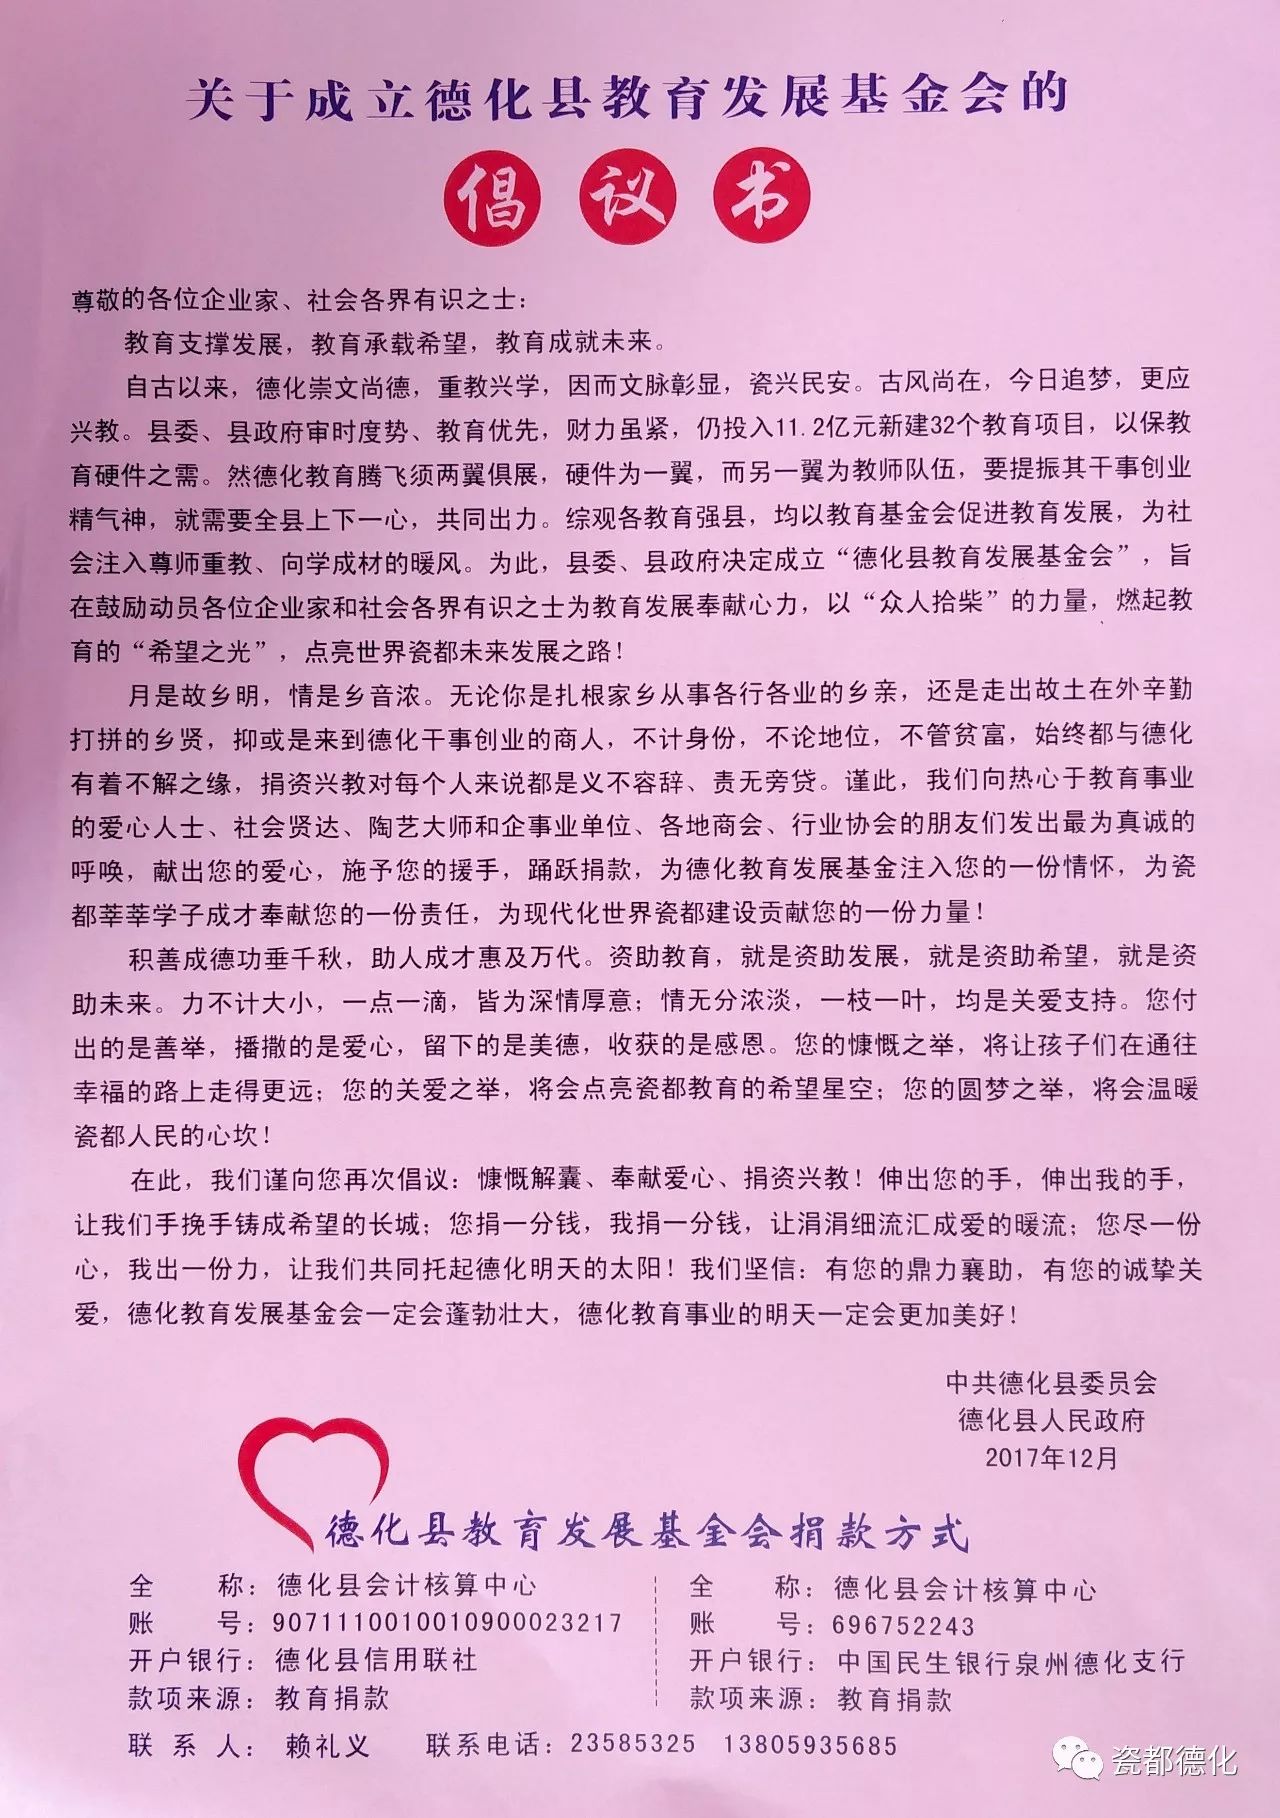 关于成立德化县教育发展基金会的
倡议书
尊敬的各位企业家、社会各界有识之士：
教育支撑发展，教育承载希望，教育成就未来。
自古以来，德化崇文尚德，重教兴学，因而文脉彰显，瓷兴民安。古风尚在，今日追梦，更应
兴教。县委、县政府审时度势、教育优先，财力虽紧，仍投入11.2亿元新建32个教育项目，以保教
育硬件之需。然德化教育腾飞须两翼俱展，硬件为一翼，而另一翼为教师队伍，要提振其干事创业
精气神，就需要全县上下一心，共同出力。综观各教育强县，均以教育基金会促进教育发展，为社
会注入尊师重教、向学成材的暖风。为此，县委、县政府决定成立“德化县教育发展基金会”，旨
在鼓励动员各位企业家和社会各界有识之士为教育发展奉献心力，以“众人拾柴”的力量，燃起教
育的“希望之光”，点亮世界瓷都未来发展之路！
月是故乡明，情是乡音浓。无论你是扎根家乡从事各行各业的乡亲，还是走出故土在外辛勤
打拼的乡贤，抑或是来到德化干事创业的商人，不计身份，不论地位，不管贫富，始终都与德化
有着不解之缘，捐资兴教对每个人来说都是义不容辞、责无旁贷。谨此，我们向热心于教育事业
的爱心人士、社会贤达、陶艺大师和企事业单位、各地商会、行业协会的朋友们发出最为真诚的
呼唤，献出您的爱心，施予您的援手，踊跃捐款，为德化教育发展基金注入您的一份情怀，为瓷
都莘莘学子成才奉献您的一份责任，为现代化世界瓷都建设贡献您的一份力量！
积善成德功垂千秋，助人成才惠及万代。资助教育，就是资助发展，就是资助希望，就是资
助未来。力不计大小，一点一滴，皆为深情厚意；情无分浓淡，一枝一叶，均是关爱支持。您付
出的是善举，播撒的是爱心，留下的是美德，收获的是感恩。您的慷慨之举，将让孩子们在通往
幸福的路上走得更远；您的关爱之举，将会点亮瓷都教育的希望星空；您的圆梦之举，将会温暖
瓷都人民的心坎！
在此，我们谨向您再次倡议：慷慨解囊、奉献爱心、捐资兴教！伸出您的手，伸出我的手，
让我们手挽手铸成希望的长城；您捐一分钱，我捐一分钱，让涓涓细流汇成爱的暖流；您尽一份
心，我出一份力，让我们共同托起德化明天的太阳！我们坚信：有您的鼎力襄助，有您的诚挚关
爱，德化教育发展基金会一定会蓬勃壮大，德化教育事业的明天一定会更加美好！
中共德化县委员会
德化县人民政府
2017年12月
德化县教育发展基金会捐款方式
全　　称：德化县会计核算中心
账　　号：9071110010010900023217
开户银行：德化县信用联社
款项来源：教育捐款
全　　称：德化县会计核算中心
账　　号：696752243
开户银行：中国民生银行泉州德化支行
款项来源：教育捐款
联 系 人：赖礼义　联系电话：23585325 13805935685
瓷都德化